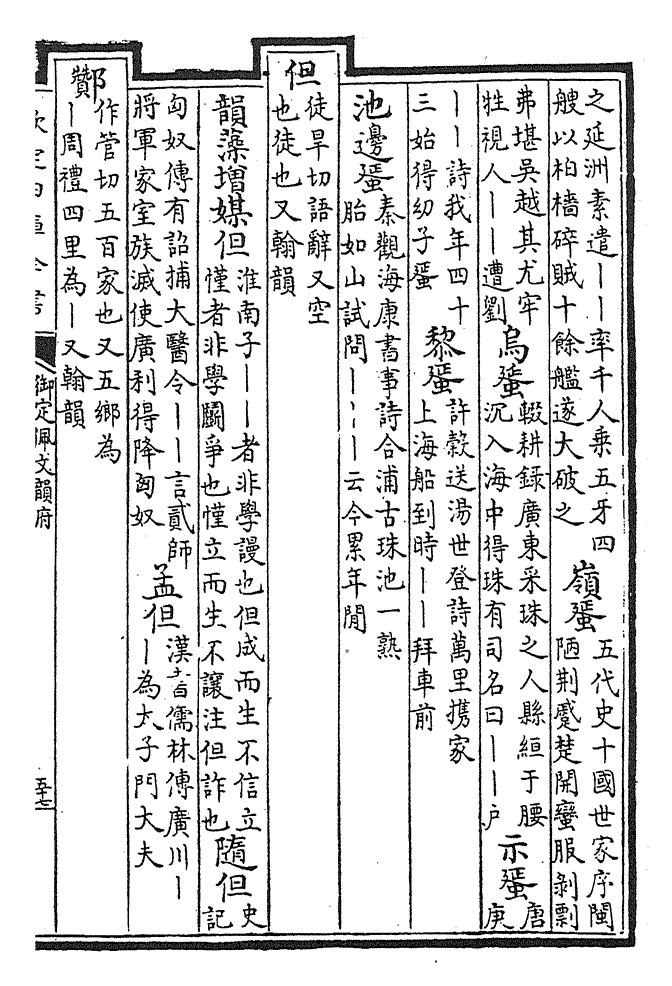 之延洲素遣——率千人乗五牙四
艘以柏檣碎賊十餘艦遂大破之
嶺蜑
五代史十國世家序閩
陋荆蹙楚開蠻服剝剽
弗堪吳越其尤牢
牲視人——遭劉
烏蜑
輟耕録廣東采珠之人縣絙于腰
沉入海中得珠有司名曰——户
示蜑
唐
庚
——詩我年四十
三始得幼子蜑
黎蜑
許榖送湯世登詩萬里携家
上海船到時——拜車前
池邊蜑
秦觀海康書事詩合浦古珠池一熟
胎如山試問———云今累年閒
但
徒旱切語辭又空
也徒也又翰韻
韻藻增媒但
淮南子——者非學謾也但成而生不信立
慬者非學鬭爭也慬立而生不讓注但詐也
隨但
史
記
匈奴傳有詔捕大醫令——言貳師
將軍家室族滅使廣利得降匈奴
孟但
漢書儒林傳廣川—
—為太子門大夫
酇
作管切五百家也又五鄉為
—周禮四里為—又翰韻
欽定四庫全書
御定佩文韻府
五十七